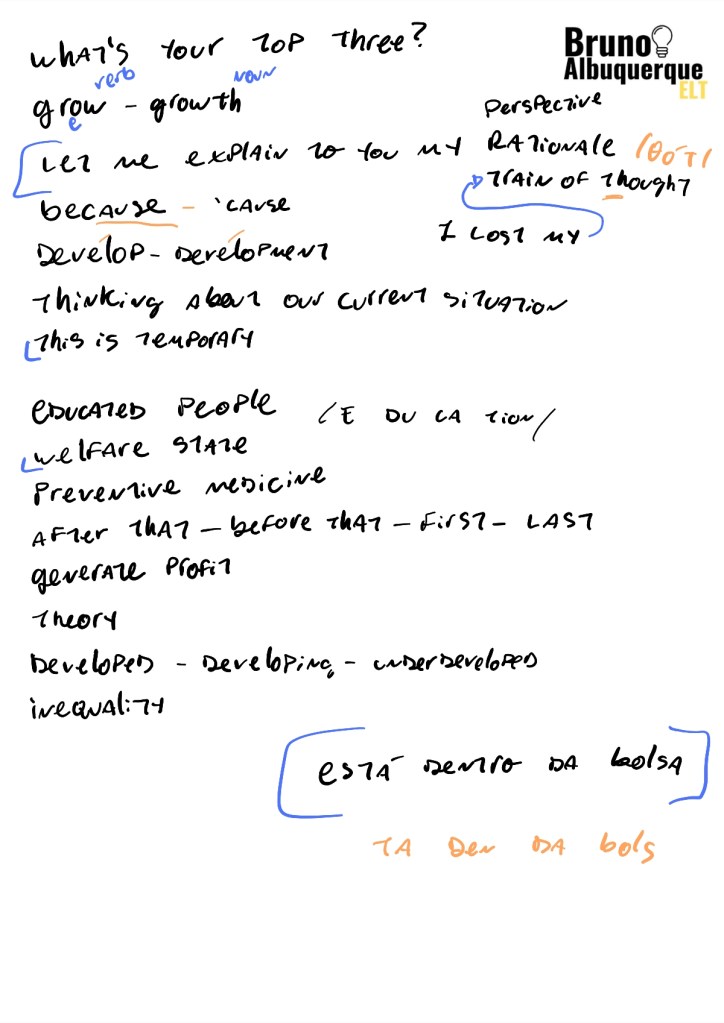 WHAT'S YOUR TOP THREE?
Bruno
Albuquerque
ELT
verb NOUN
grow - growth
e
PERSPECTIVE
LET ME EXPLAIN TO YOU MY RATIONALE /θÓT/
TRAIN OF THOUGHT
because - 'CAUSE
I LOST MY
DEVELOP - DEVELOPMENT
THINKING ABOUT OUR CURRENT SITUATION
THIS IS TEMPORARY
EDUCATED PEOPLE /E DU CA TION/
WELFARE STATE
PREVENTIVE MEDICINE
AFTER THAT - BEFORE THAT - FIRST - LAST
GENERATE PROFIT
THEORY
DEVELOPED - DEVELOPING - UNDERDEVELOPED
INEQUALITY
ESTÁ DENTRO DA bolSA
TA DEN DA bols